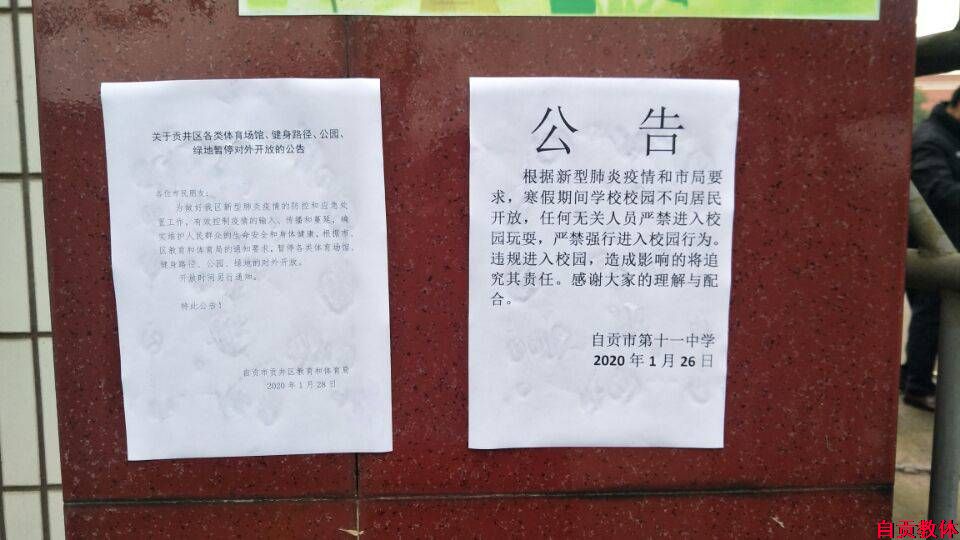 关于贡井区各类体育场馆、健身路径、公园、
绿地暂停对外开放的公告
各位市民朋友：
为做好我区新型肺炎疫情的防控和应急处
置工作，有效控制疫情的输入、传播和蔓延，确
实维护人民群众的生命安全和身体健康，根据市、
区教育和体育局的通知要求，暂停各类体育场馆、
健身路径、公园、绿地的对外开放。
开放时间另行通知。
特此公告！
自贡市贡井区教育和体育局
2020年1月28日
公 告
根据新型肺炎疫情和市局要
求，寒假期间学校校园不向居民
开放，任何无关人员严禁进入校
园玩耍，严禁强行进入校园行为。
违规进入校园，造成影响的将追
究其责任。感谢大家的理解与配
合。
自贡市第十一中学
2020年1月26日
自贡教体